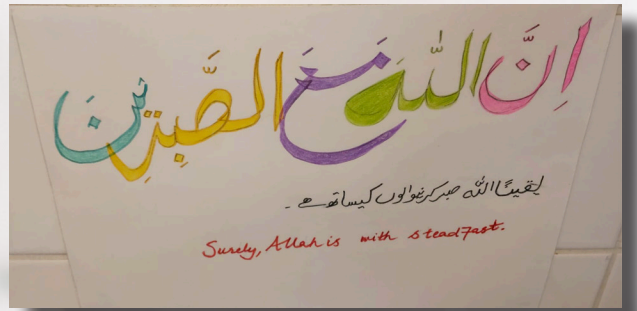 اِنَّ اللّٰهَ مَعَ الصَّبِرِيْنَ
یقیناً اللّٰه صبر کرنیوالوں کیساتھ ہے ۔
Surely, Allah is with steadfast.